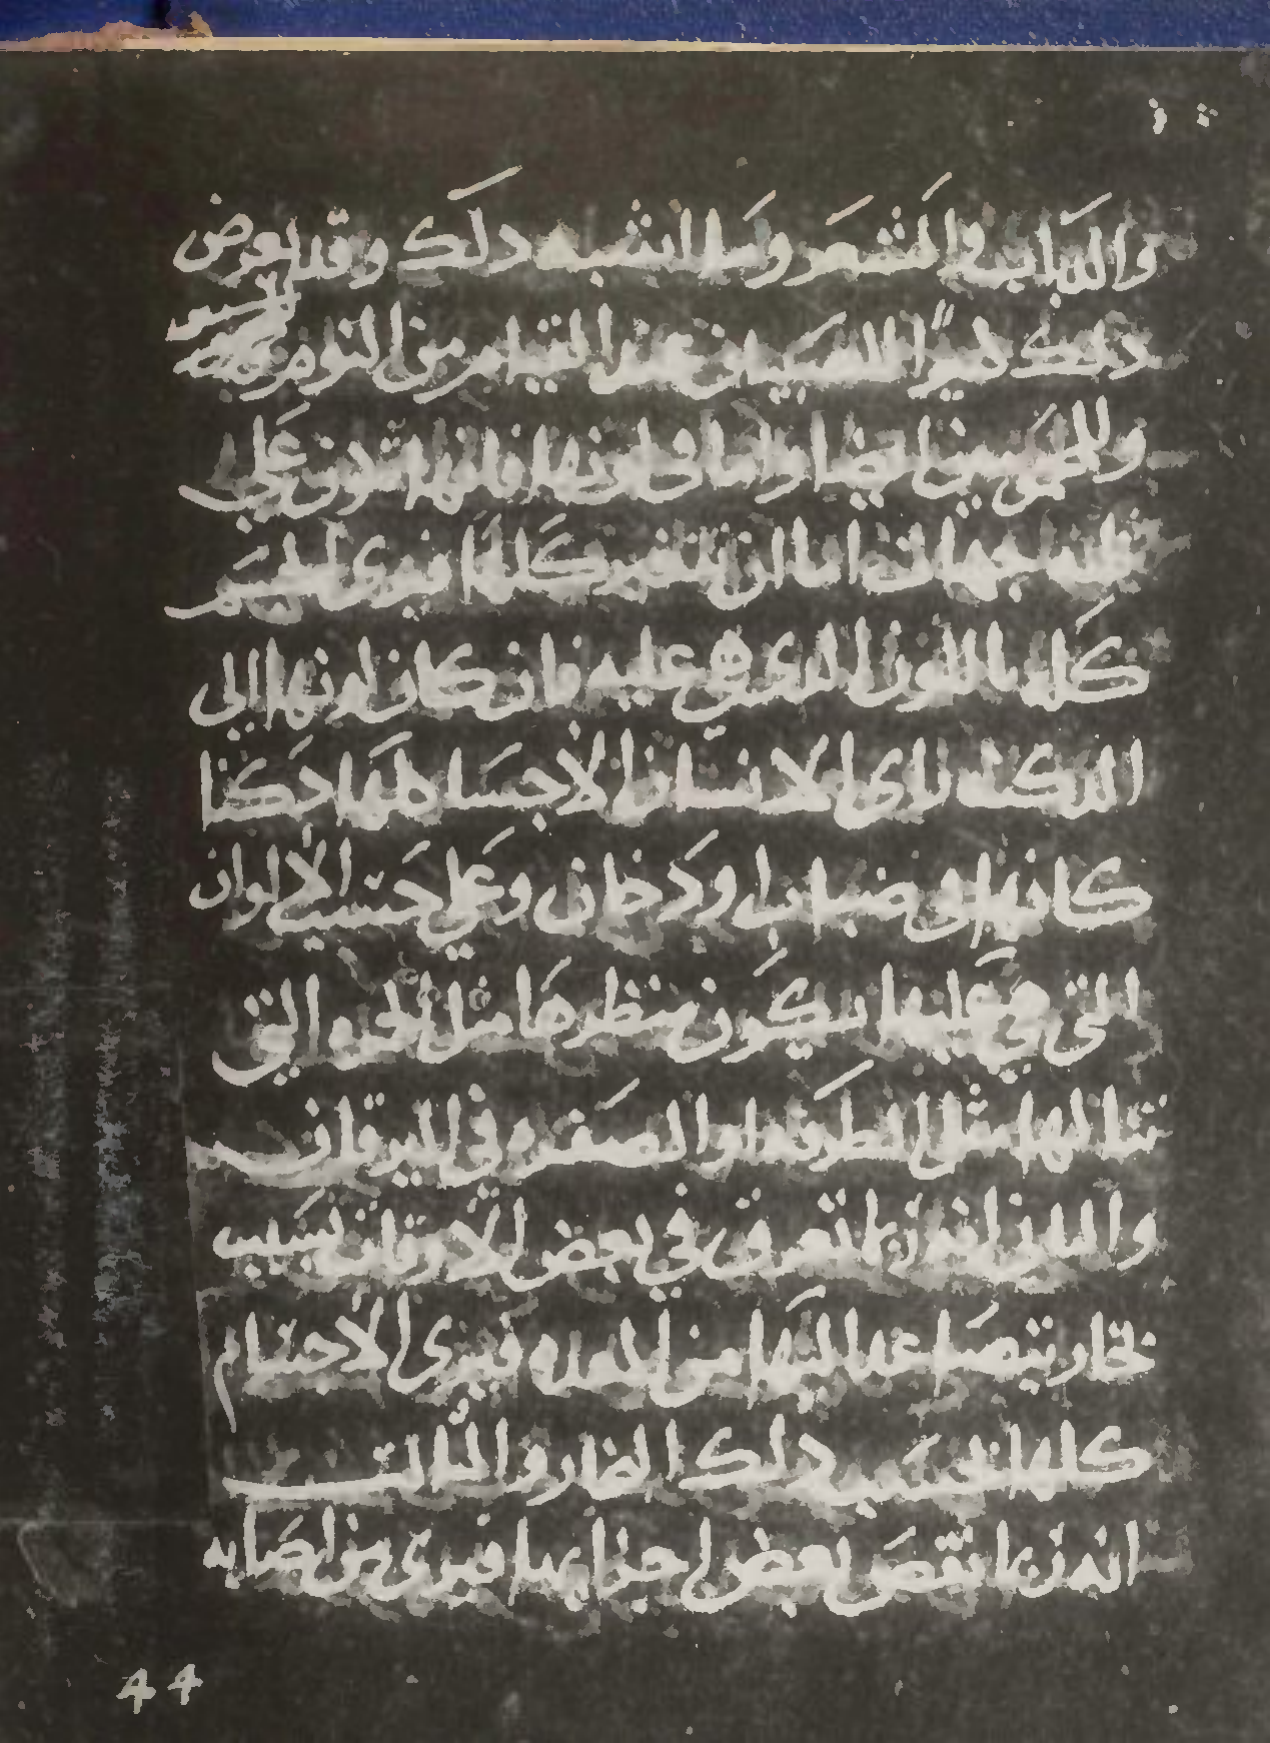 والذباب والشعر وما اشبه ذلك وقد يعرض
ذلك كثيرا للصبيان عند القيام من النوم
وللمحمومين ايضا واما في لونها فانها تتلون على
ثلاث جهات اما ان تتغير كلها فيرى الجسم
كله باللون الذي هي عليه فان كان لونها الى
الدكنه راى الانسان الاجسام كلها دكنا
كانها في ضباب ودخان وعلى حسب الالوان
التي هي عليها يكون منظرها مثل الحمره التي
تنالها مثل الطرفه او الصفره في اليرقان
والثاني انه ربما تعرق في بعض الاوقات بسبب
بخار يتصاعد اليها من المعده فيرى الاجسام
كلها بحسب ذلك البخار والثالث
انه ربما ينقص بعض اجزايها فيرى من اصابه
44